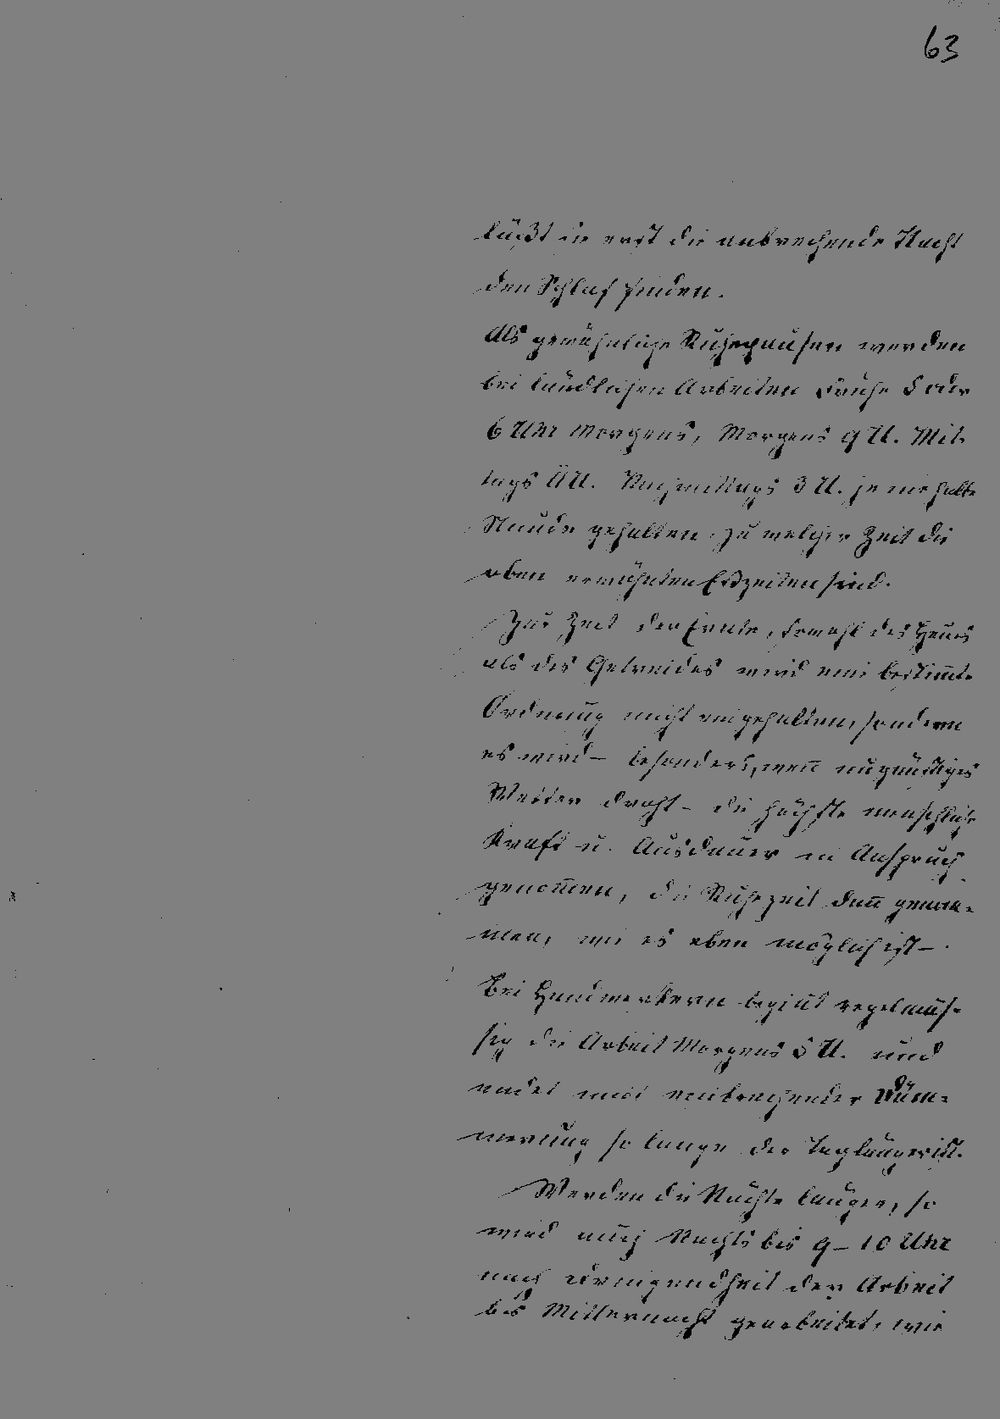 63
läßt sie erst die anbrechende Nacht
den Schlaf finden.
Als gewöhnliche Ruhepausen werden
bei ländlichen Arbeiten Frühe 5 oder
6 Uhr Morgens, Morgens 9 U. Mit-
tags U. Nachmittags 3 U. je eine halbe
Stunde gehalten, zu welcher Zeit die
oben erwähnten Eßzeiten sind.
Zur Zeit der Ernte, sowohl des Heues
als des Getreides wird eine bestimmte
Ordnung nicht eingehalten, sondern
es wird – besonders, wenn ungünstiges
Wetter droht – die höchste menschliche
Kraft u. Ausdauer in Anspruch
genommen, die Ruhezeit dann genom-
men, wie es eben möglich ist –.
Bei Handwerkern beginnt regelmäs-
sig die Arbeit Morgens 5 U. und
endet mit einbrechender Däm-
merung so lange der Tag länger ist.
Werden die Nächte länger, so
wird auch Nachts bis 9 – 10 Uhr
nach Dringendheit der Arbeit
bis Mitternacht gearbeitet, wie